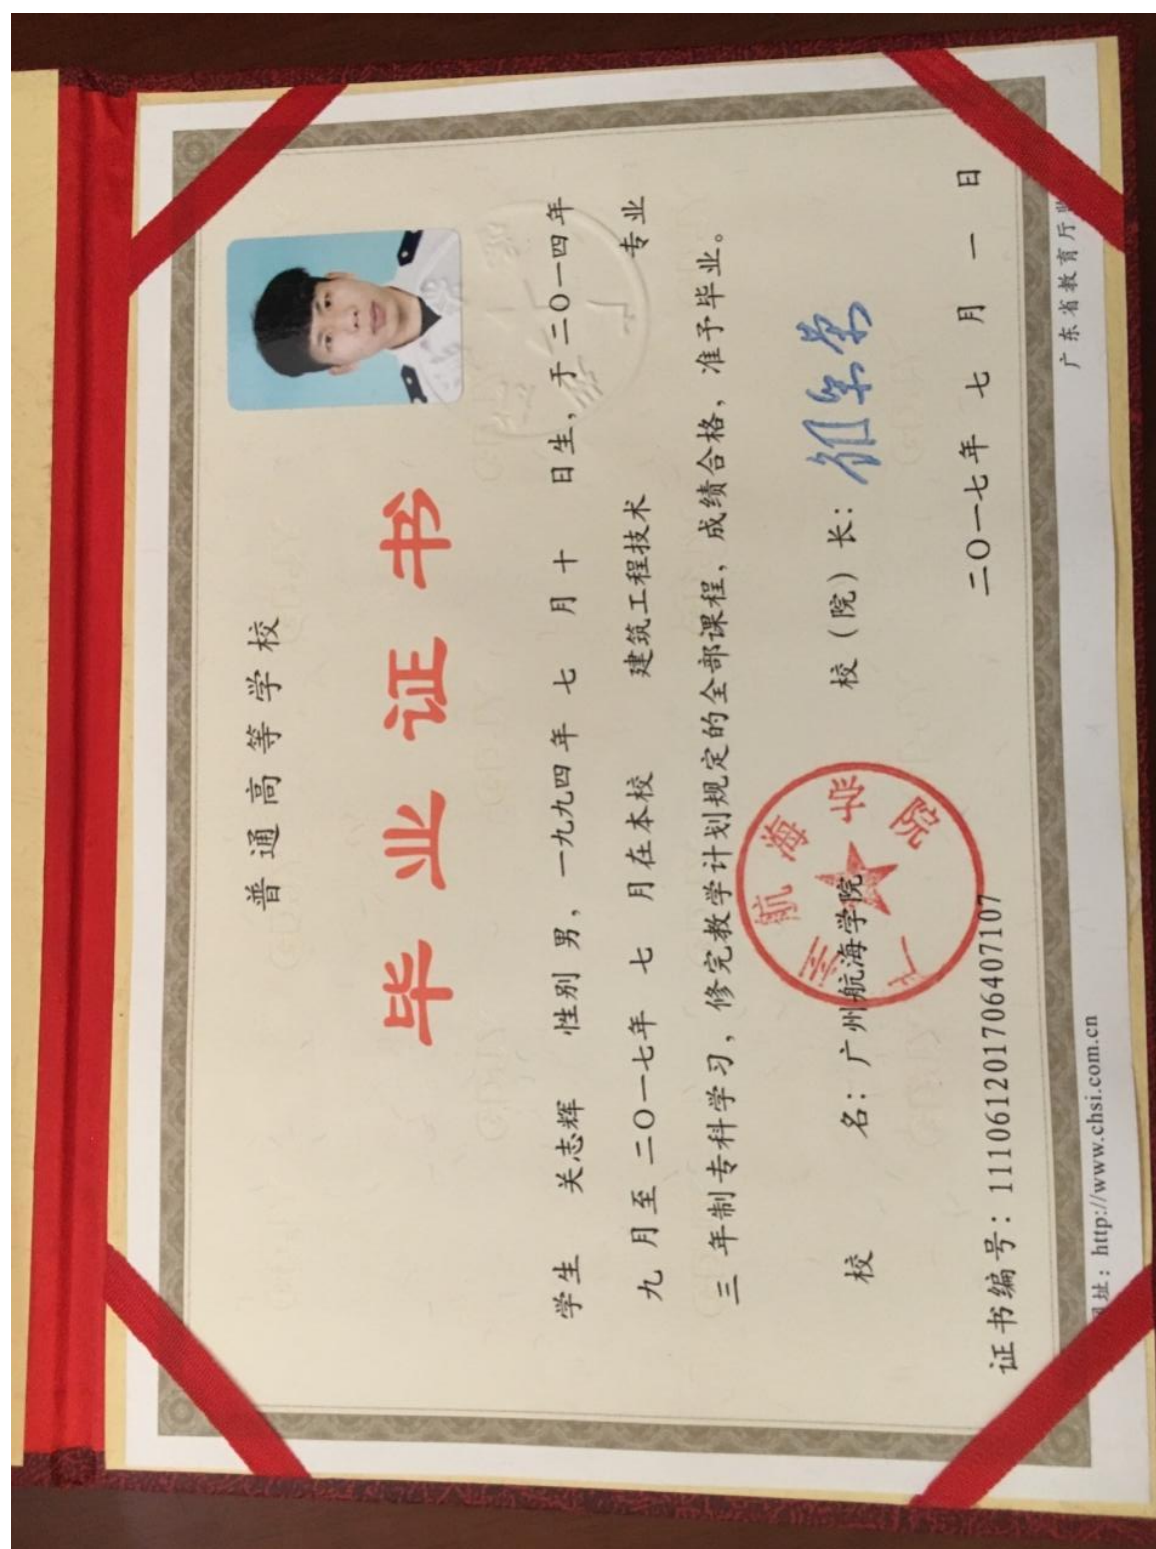 普通高等学校
毕业证书
学生 关志辉 性别 男，一九九四年 七 月 十 日生，于二〇一四年
九 月至 二〇一七年 七 月在本校 建筑工程技术 专业
三 年制专科学习，修完教学计划规定的全部课程，成绩合格，准予毕业。
校 名：广州航海学院 校（院）长：
广州航海学院
二〇一七年 七 月 一 日
证书编号：111061201706407107
网址：http://www.chsi.com.cn 广东省教育厅